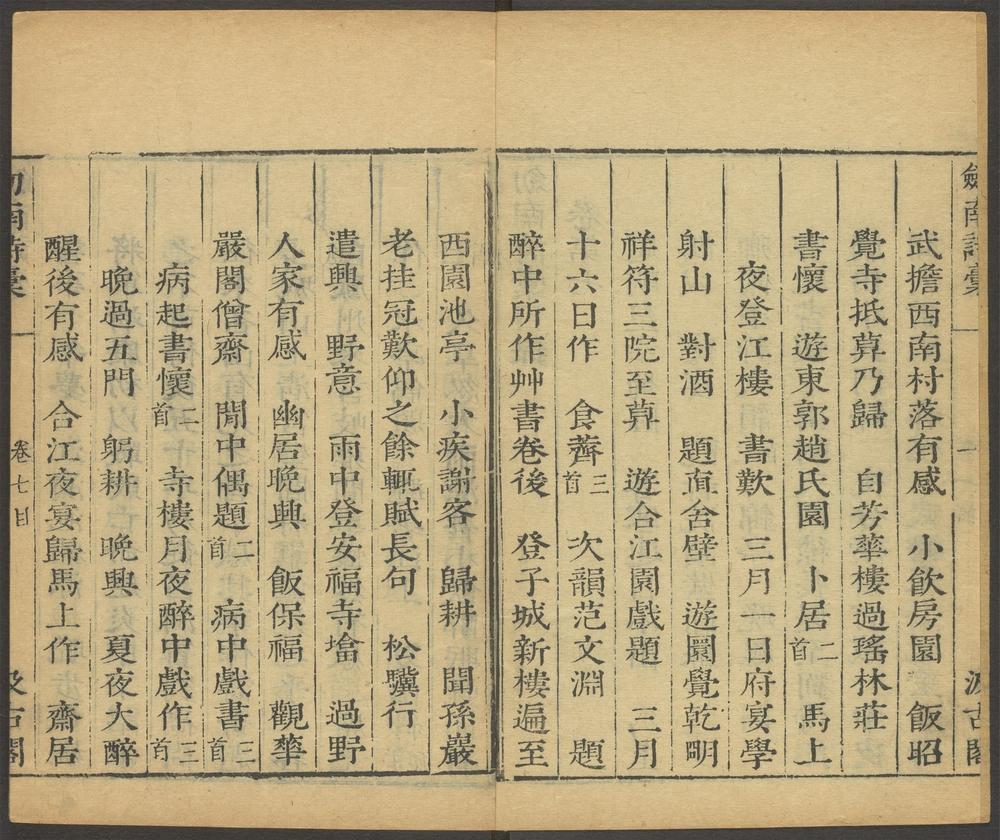 劒南詩稾
一
汲古閣
武擔西南村落有感　小飲房園　飯昭
覺寺抵莫乃歸　自芳華樓過瑤林莊
書懷　遊東郭趙氏園　卜居二首　馬上
夜登江樓　書歎　三月一日府宴學
射山　對酒　題直舍壁　遊圜覺乾明
祥符三院至莫　遊合江園戲題　三月
十六日作　食薺三首　次韻范文淵　題
醉中所作艸書卷後　登子城新樓遍至
西園池亭　小疾謝客　歸耕　聞孫巖
老挂冠歎仰之餘輒賦長句　松驥行
遣興　野意　雨中登安福寺墖　過野
人家有感　幽居晚興　飯保福　觀華
嚴閣僧齋　閒中偶題二首　病中戲書三首
病起書懷二首　寺樓月夜醉中戲作三首
晚過五門　躬耕　晚興　夏夜大醉
醒後有感　合江夜宴歸馬上作　齋居
劒南詩稾
卷七目
汲古閣